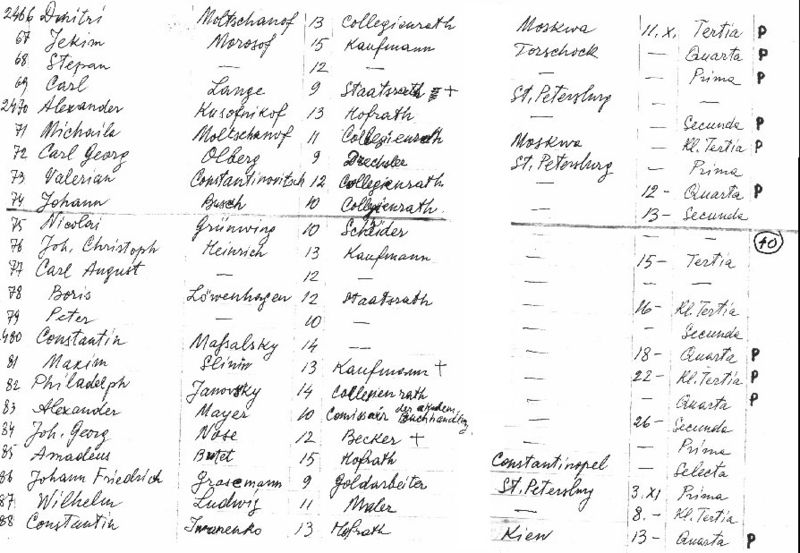 2466 Dmitri Moltschanof 13 Collegienrath Moskwa 11. X. Tertia P
67 Jekim Morosof 15 Kaufmann Torschock — Quarta P
68 Stepan — 12 — — — Prima P
69 Carl Lange 9 Staatsrath + St. Petersburg — —
2470 Alexander Kusofnikof 13 Hofrath — — Secunda P
71 Michaila Moltschanof 11 Collegienrath Moskwa — Kl. Tertia P
72 Carl Georg Olberg 9 Drechsler St. Petersburg — Prima
73 Valerian Constantinovitsch 12 Collegienrath — 12 - Quarta P
74 Johann Busch 10 Collegienrath — 13 - Secunda
75 Nicolai Grünwing 10 — — —
76 Joh. Christoph Heinrich 13 Kaufmann — 15 - Tertia 40
77 Carl August — 12 — — —
78 Boris Löwenhagen 12 Staatsrath — 16 - Kl. Tertia
79 Peter — 10 — — — Secunda
480 Constantin Mafsalsky 14 — — 18 - Quarta P
81 Maxim Slinin 13 Kaufmann + — 22 - Kl. Tertia P
82 Philadelph Janovsky 14 Collegienrath — — Quarta P
83 Alexander Mayer 10 Comissair der akadem. Buchhandlg. — 26 - Secunda
84 Joh. Georg Nose 12 Becker + — — Prima
85 Amadeus 15 Hofrath Constantinopel — Selecta
86 Johann Friedrich Grasemann 9 Goldarbeiter St. Petersburg 3. XI Prima
87 Wilhelm Ludwig 11 Maler — 8. - Kl. Tertia
88 Constantin Iwanenko 13 Hofrath Kiew 13 - Quarta P